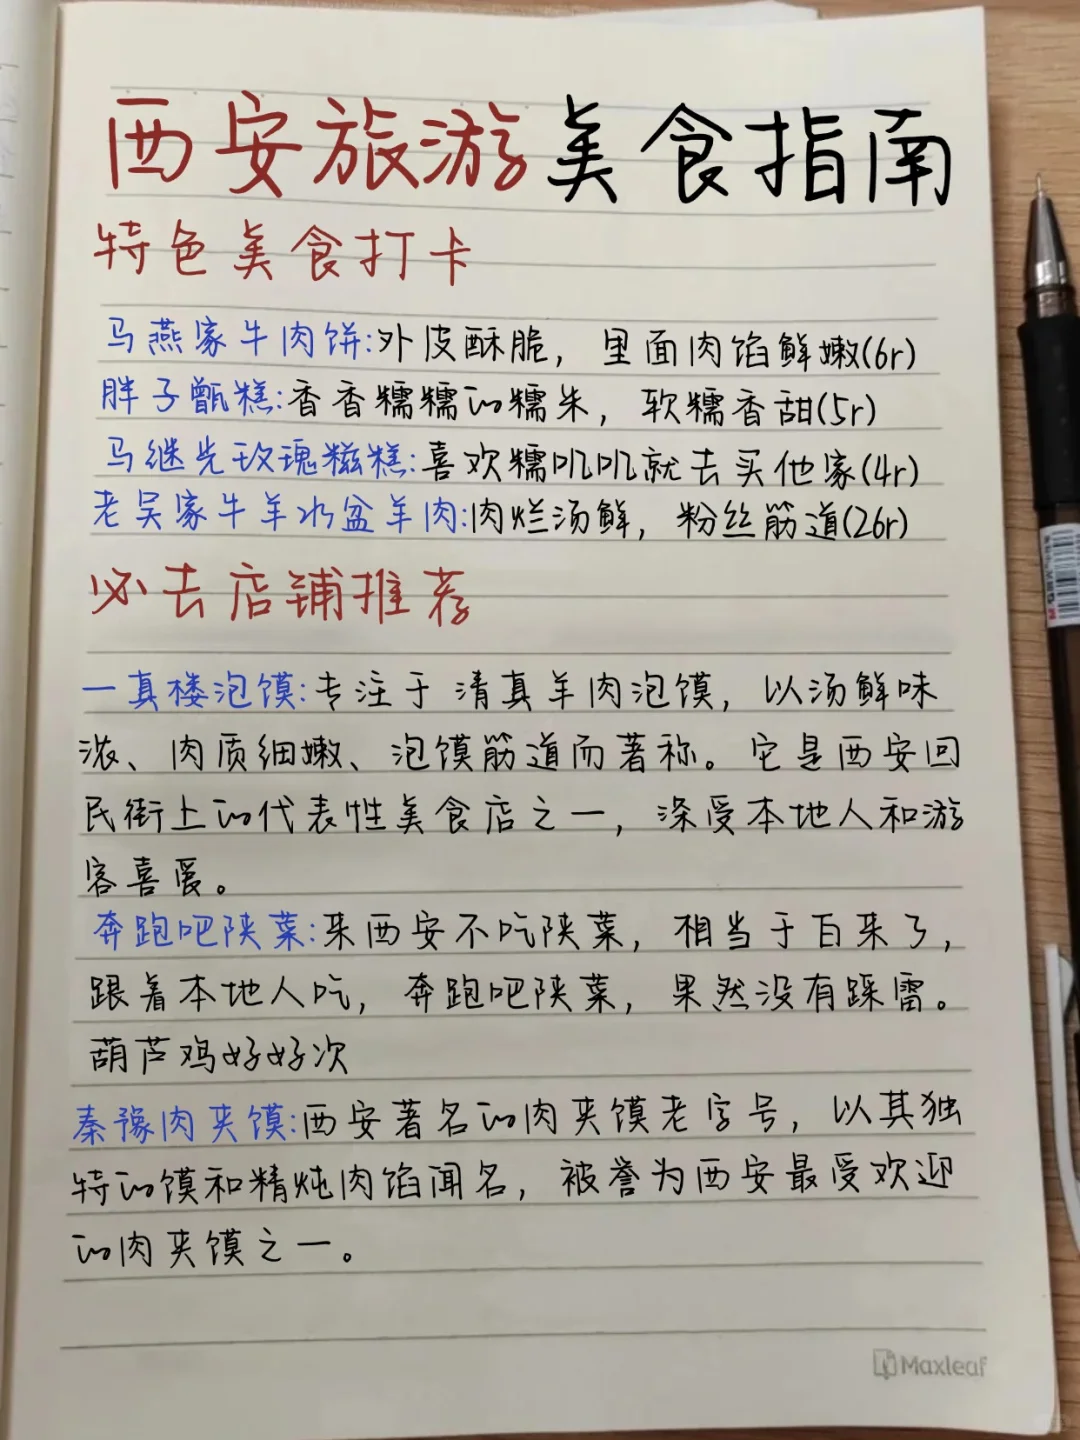 西安旅游美食指南
特色美食打卡
马燕家牛肉饼:外皮酥脆，里面肉馅鲜嫩(6r)
胖子甑糕:香香糯糯的糯米，软糯香甜(5r)
马继先玫瑰糍糕:喜欢糯叽叽就去买他家(4r)
老吴家牛羊水盆羊肉:肉烂汤鲜，粉丝筋道(26r)
必去店铺推荐
一真楼泡馍:专注于清真羊肉泡馍，以汤鲜味
浓、肉质细嫩、泡馍筋道而著称。它是西安回
民街上的代表性美食店之一，深受本地人和游
客喜爱。
奔跑吧陕菜:来西安不吃陕菜，相当于白来了，
跟着本地人吃，奔跑吧陕菜，果然没有踩雷。
葫芦鸡好好次
秦豫肉夹馍:西安著名的肉夹馍老字号，以其独
特的馍和精炖肉馅闻名，被誉为西安最受欢迎
的肉夹馍之一。
Maxleaf